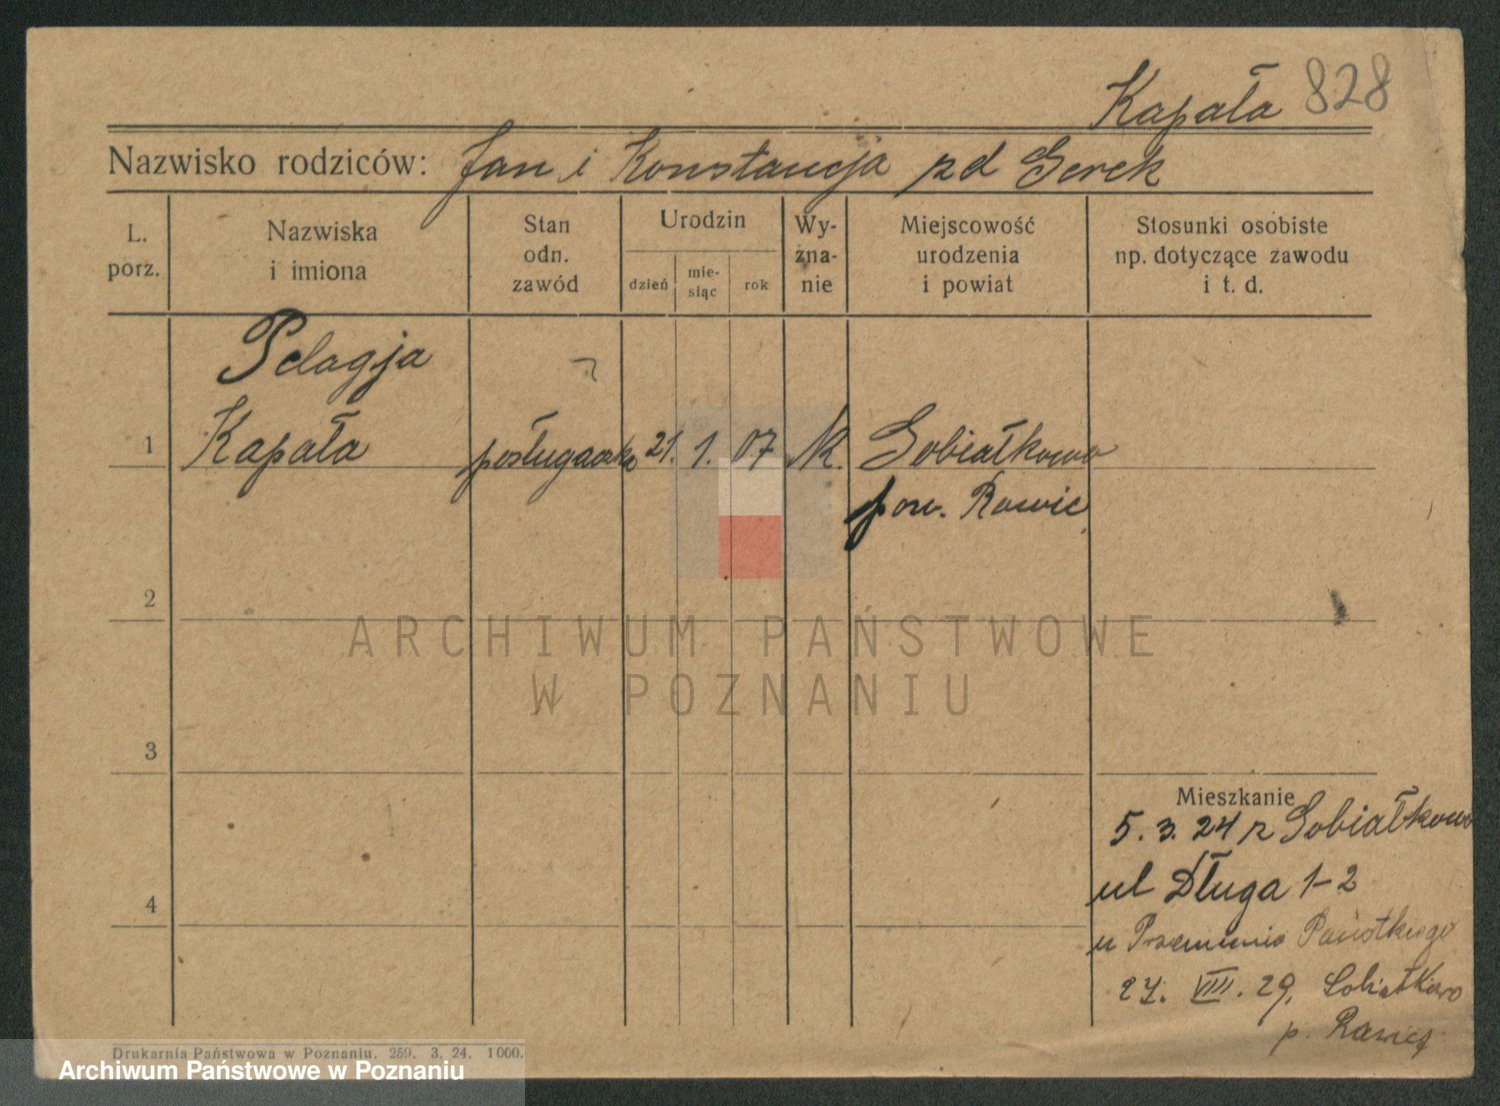 Kapała 828
Nazwisko rodziców: Jan i Konstancja zd Gerek
L. porz.
Nazwiska i imiona
Stan odn. zawód
Urodzin
dzień
mie-
siąc
rok
Wy-
zna-
nie
Miejscowość urodzenia i powiat
Stosunki osobiste np. dotyczące zawodu i t. d.
Pelagja
1 Kapała posługaczka 21. 1. 07 rk. Sobiałkowo
pow. Rawic
2
ARCHIWUM PAŃSTWOWE
W POZNANIU
3
Mieszkanie
5. 3. 24 z Sobiałkowo
4
ul Długa 1-2
u
27. VIII. 29. Sobiałkowo
p. Rawicz
Drukarnia Państwowa w Poznaniu. 259. 3. 24. 1000.
Archiwum Państwowe w Poznaniu